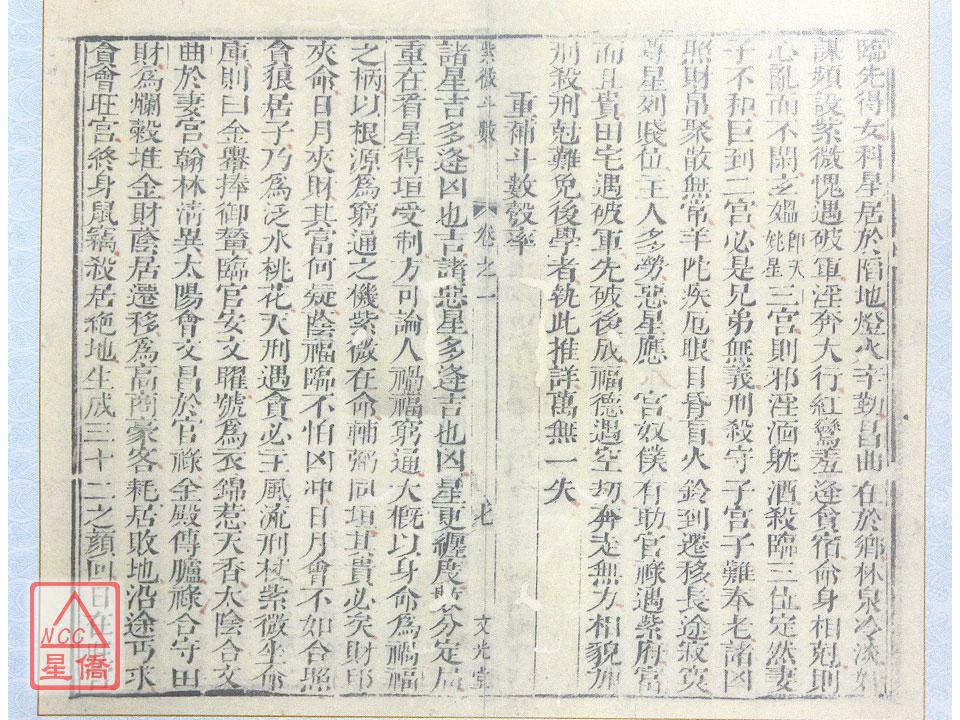 臨先得女科星居於陷地燈火辛勤昌曲在於鄉林泉冷淡
謀頻設紫微愧遇破軍淫奔大行紅鸞羞逢貪宿命身相剋則
心亂而不閑玄媼即天姚星三宮則邪淫酒躭酒殺臨三位定然妻
子不和巨到二宮必是兄弟無義刑殺守子宮子難奉老諸凶
照財帛聚散無常羊陀疾厄眼目昏盲火鈴到遷移長途寂寞
尊星列賤位主人多勞惡星應宮奴僕有助官祿遇紫府富
而且貴田宅遇破軍先破後成福德遇空刼奔走無方相貌加
刑殺刑剋難免後學者執此推詳萬無一失
重補斗數彀率
紫微斗數 卷之一 文光堂
諸星吉多逢凶也吉諸惡星多逢吉也凶星更纏度數分定局
重在看星得垣受制方可論人禍福窮通大概以身命爲禍福
之柄以根源爲窮通之機紫微在命輔弼同垣其貴必矣財印
夾命日月夾財其富何疑蔭福臨不怕凶冲日月會不如合照
貪狼居子乃爲泛水桃花天刑遇貪必主風流刑杖紫微坐命
庫則曰金轝捧御輦臨官安文曜號爲衣錦惹天香太陰合文
曲於妻宮翰林清異太陽會文昌於官祿金殿傳臚祿合守田
財爲爛穀堆金財蔭居遷移爲高商豪客耗居敗地沿途丐求
貪會旺宮終身鼠竊殺居絶地生成三十二之顏回日在
NCC
星僑